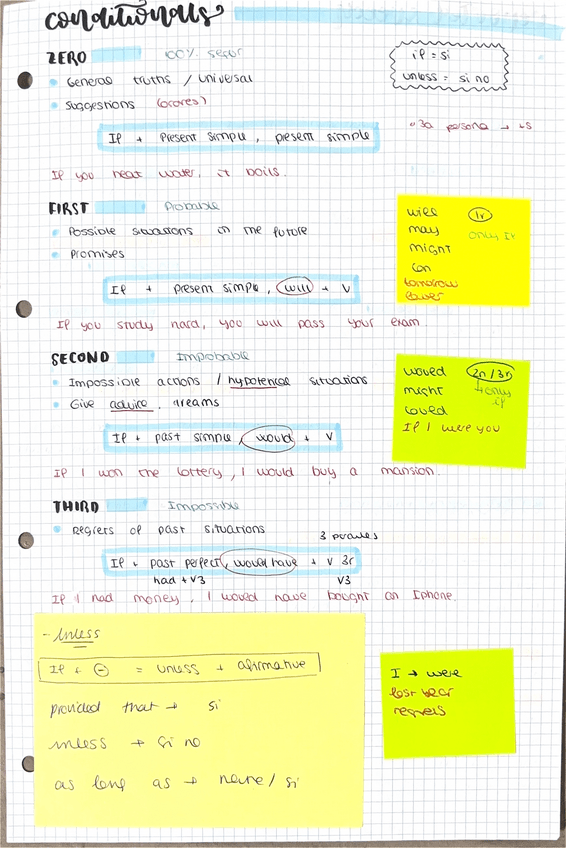 conditionals
ZERO 100% segur
if = si
unless = si no
• General truths / universal
• Suggestions (ordres)
• 3a persona → +s
If + Present simple, present simple
If you heat water, it boils.
FIRST Probable
• Possible situations in the future
• Promises
If + present simple, will + V
If you study hard, you will pass your exam.
will 1r
may only 1r
might
can
tomorrow
SECOND Improbable
• Impossible actions / hypotetical situations
• Give advice, dreams
If + past simple, would + V
If I won the lottery, I would buy a mansion.
would 2n / 3r
might → only if
could
If I were you
THIRD Impossible
• Regrets of past situations
3 paraules
If + past perfect, would have + V 3r
had + V3 V3
If I had money, I would have bought an Iphone.
- Unless
If + ⊖ = unless + afirmative
provided that → si
unless → si no
as long as → / si
I → were
last year
regrets